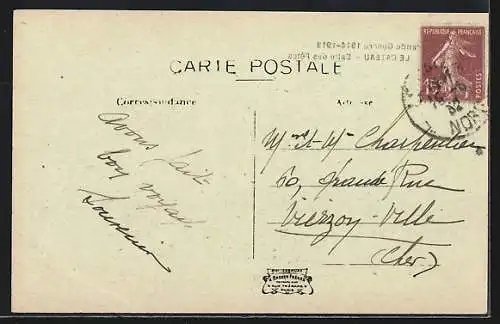 Grande Guerre 1914-1918
LE CATEAU - Salle des Fêtes
RÉPUBLIQUE FRANÇAISE
POSTES
CARTE POSTALE
Correspondance
Adresse
avons fait
bon voyage
Souvenir
Mr et Me Charpentier
60, Grande Rue
Vierzon-Ville
(Cher)
PARIS